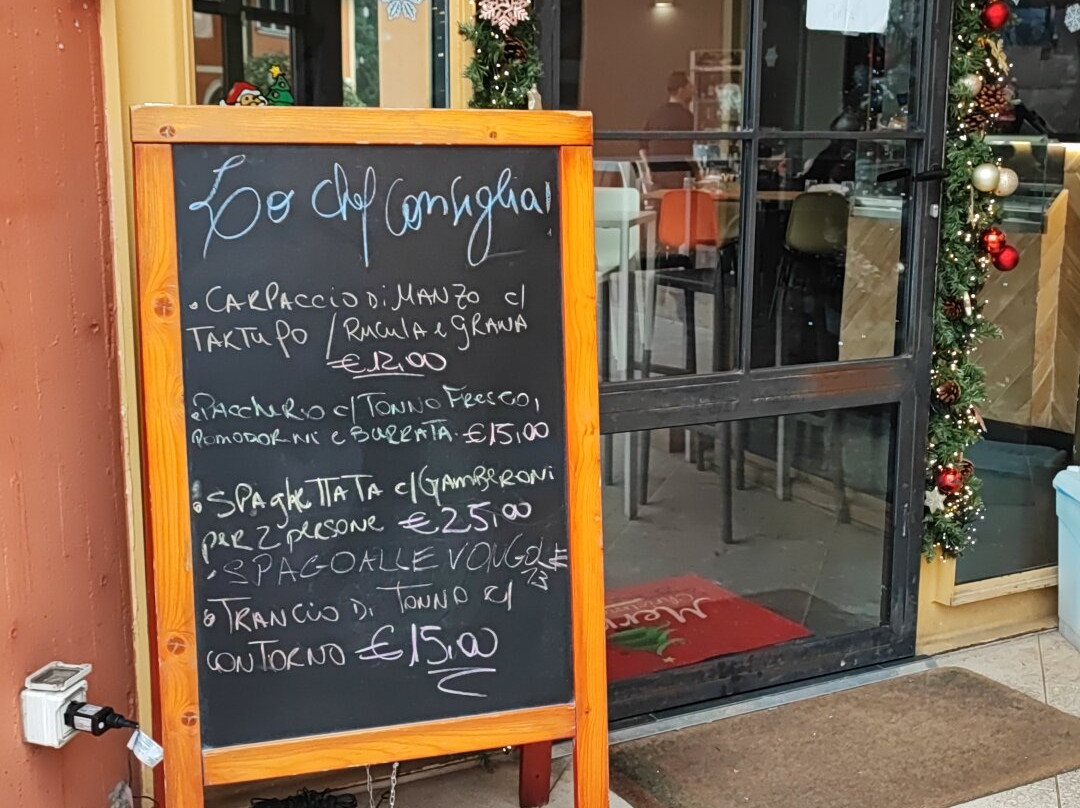 Lo chef consiglia!
• CARPACCIO Di MANZO c/
TARTUFO / RUCULA e GRANA
€12,00
• PACCHERO c/ TONNO FRESCO,
POMODORINI e BURRATA. €15,00
• SPAGHETTATA c/ GAMBERONI
per 2 persone €25,00
• SPAGO ALLE VONGOLE
13
• TRANCIO Di TONNO c/
CONTORNO €15,00
Merry